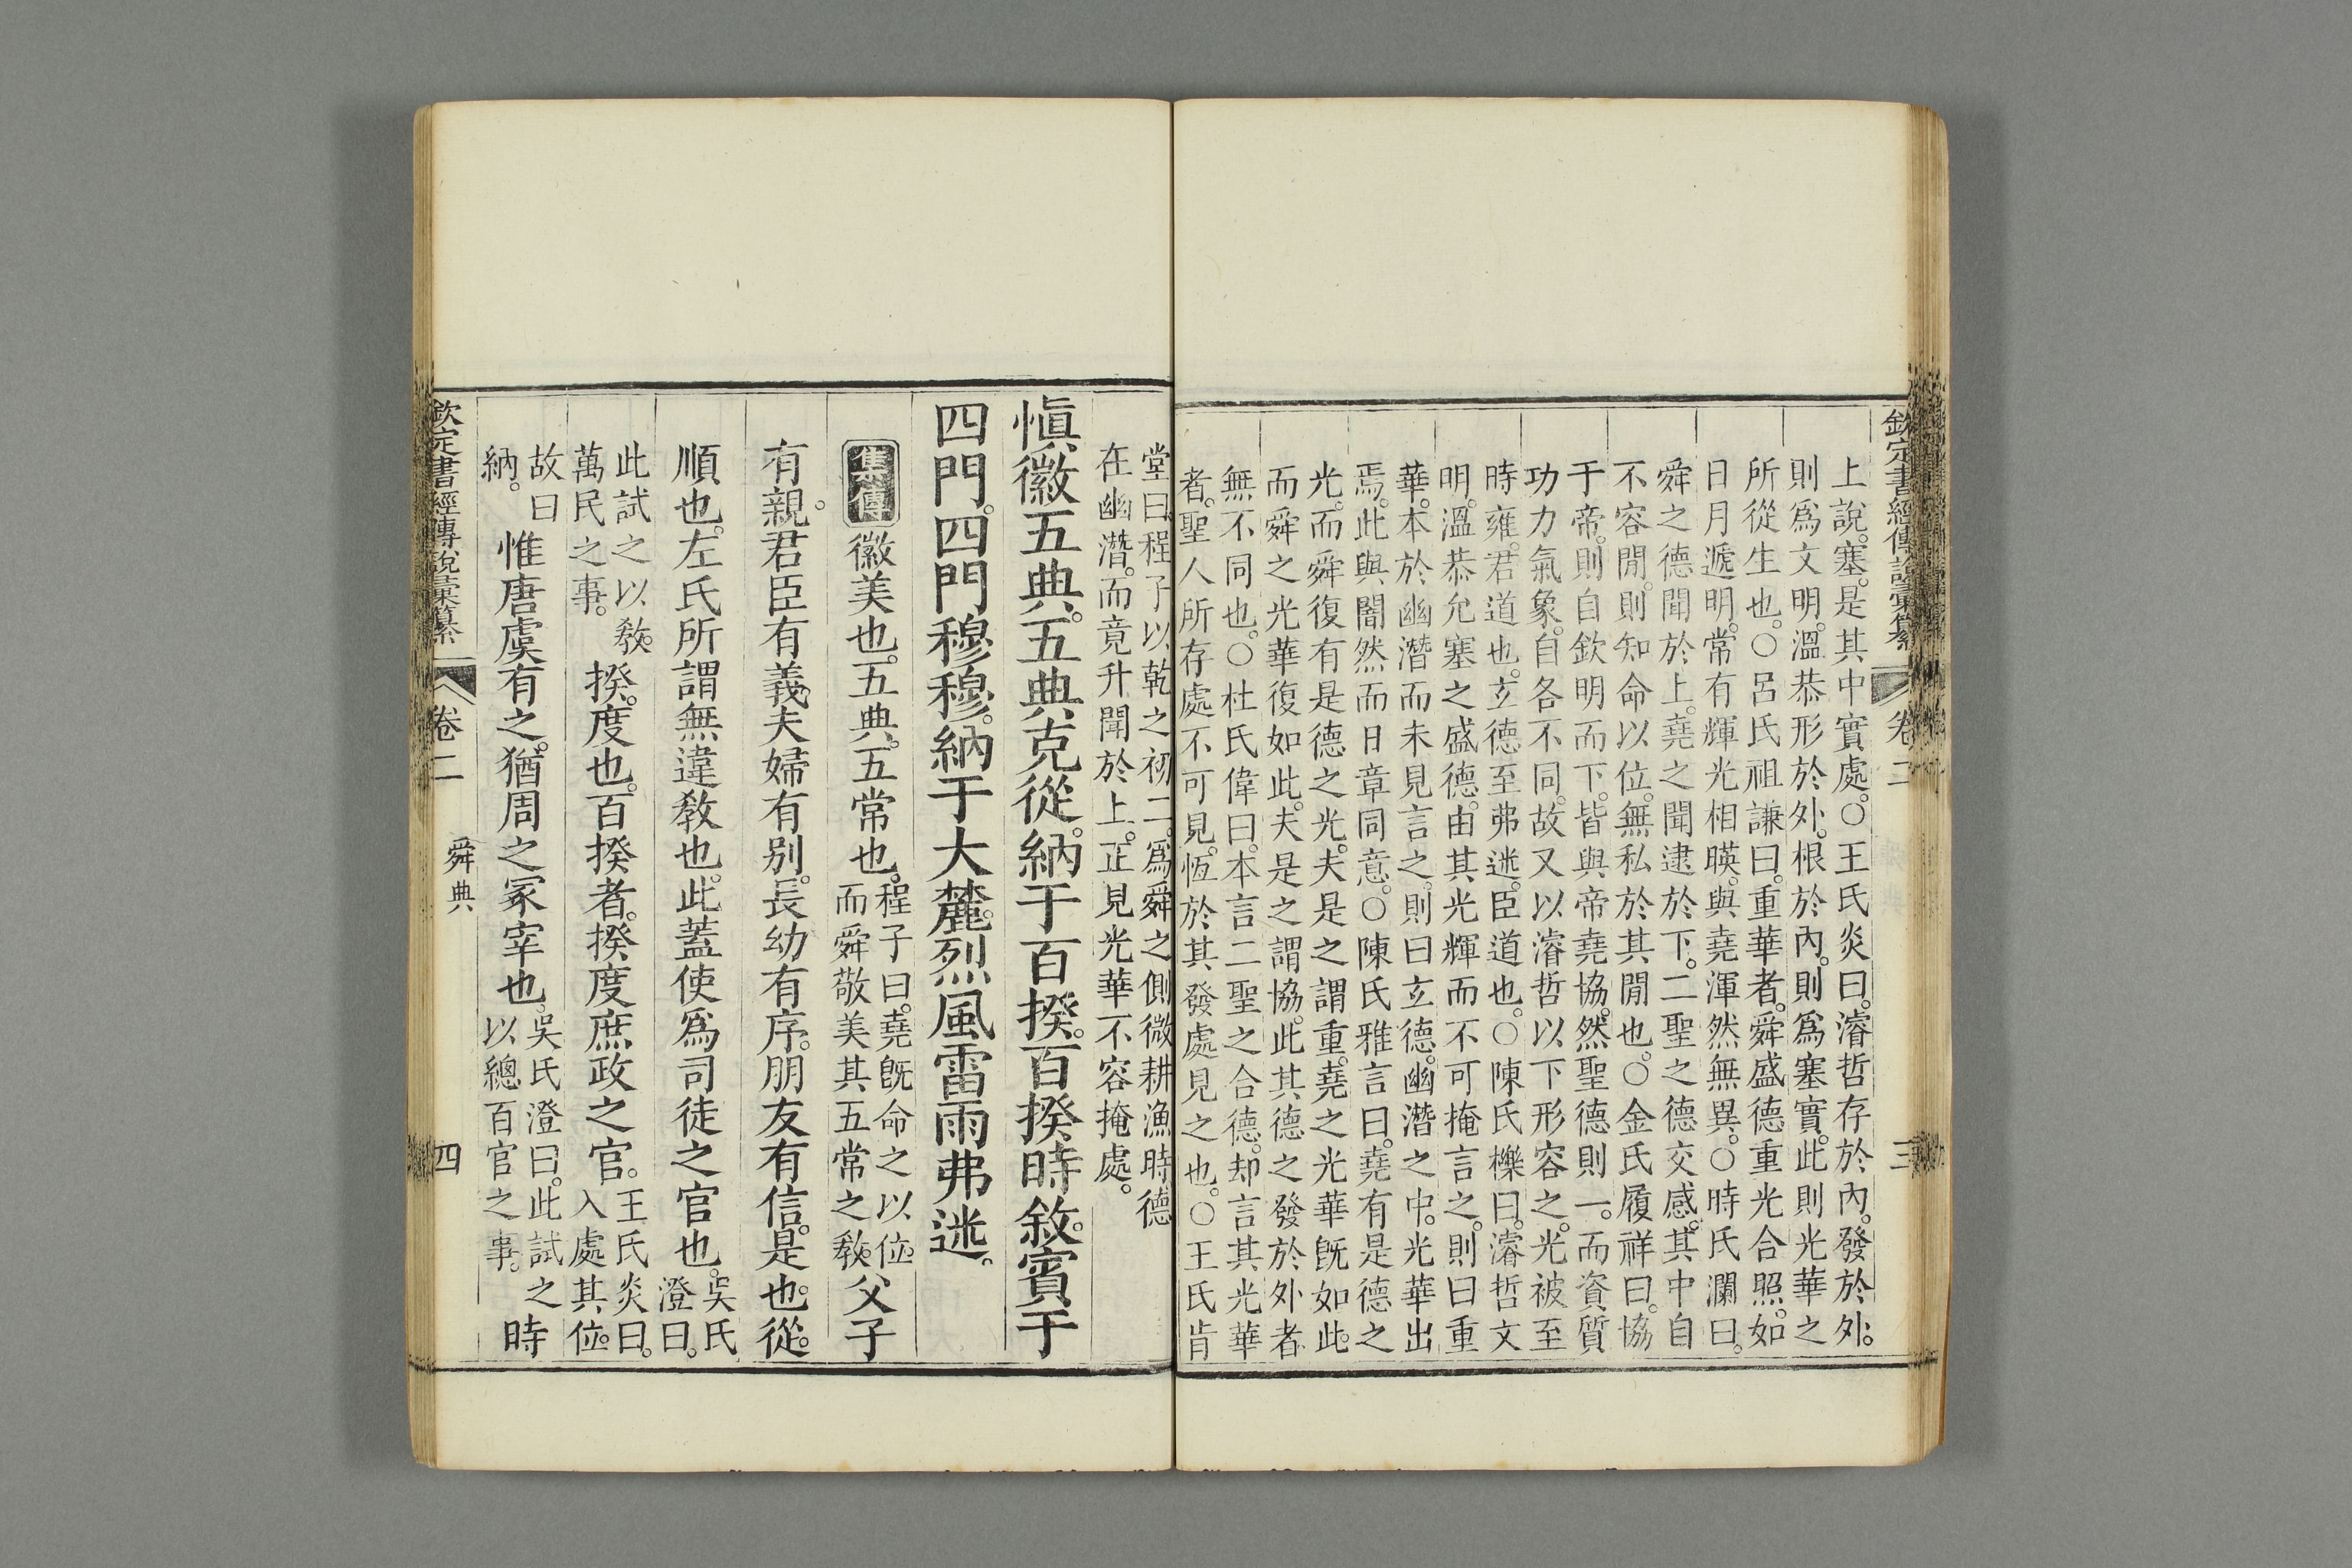 欽定書經傳說彙纂 卷二 三
上說。塞。是其中實處。○王氏炎曰。濬哲存於內。發於外。
則爲文明。溫恭形於外。根於內。則爲塞實。此則光華之
所從生也。○呂氏祖謙曰。重華者。舜盛德重光合照。如
日月遞明。常有輝光相暎。與堯渾然無異。○時氏瀾曰。
舜之德聞於上。堯之聞逮於下。二聖之德交感。其中自
不容閒。則知命以位。無私於其閒也。○金氏履祥曰。協
于帝。則自欽明而下。皆與帝堯協。然聖德則一。而資質
功力氣象。自各不同。故又以濬哲以下形容之。光被至
時雍。君道也。玄德至弗迷。臣道也。○陳氏櫟曰。濬哲文
明。溫恭允塞之盛德。由其光輝而不可掩言之。則曰重
華。本於幽潛而未見言之。則曰玄德。幽潛之中。光華出
焉。此與闇然而日章同意。○陳氏雅言曰。堯有是德之
光。而舜復有是德之光。夫是之謂重。堯之光華旣如此。
而舜之光華復如此。夫是之謂協。此其德之發於外者
無不同也。○杜氏偉曰。本言二聖之合德。却言其光華
者。聖人所存處不可見。恆於其發處見之也。○王氏肯
堂曰。程子以乾之初二。爲舜之側微耕漁時德
在幽潛。而竟升聞於上。正見光華不容掩處。
愼徽五典。五典克從。納于百揆。百揆時敘。賓于
四門。四門穆穆。納于大麓。烈風雷雨弗迷。
集傳 徽美也。五典。五常也。程子曰。堯旣命之以位。
而舜敬美其五常之敎。父子
有親。君臣有義。夫婦有別。長幼有序。朋友有信。是也。從。
順也。左氏所謂無違敎也。此蓋使爲司徒之官也。吳氏
澄曰。
此試之以敎。
萬民之事。揆。度也。百揆者。揆度庶政之官。王氏炎曰。
入處其位。
故曰
納。惟唐虞有之。猶周之冢宰也。吳氏澄曰。此試之
以總百官之事。時
欽定書經傳說彙纂 卷二 舜典 四